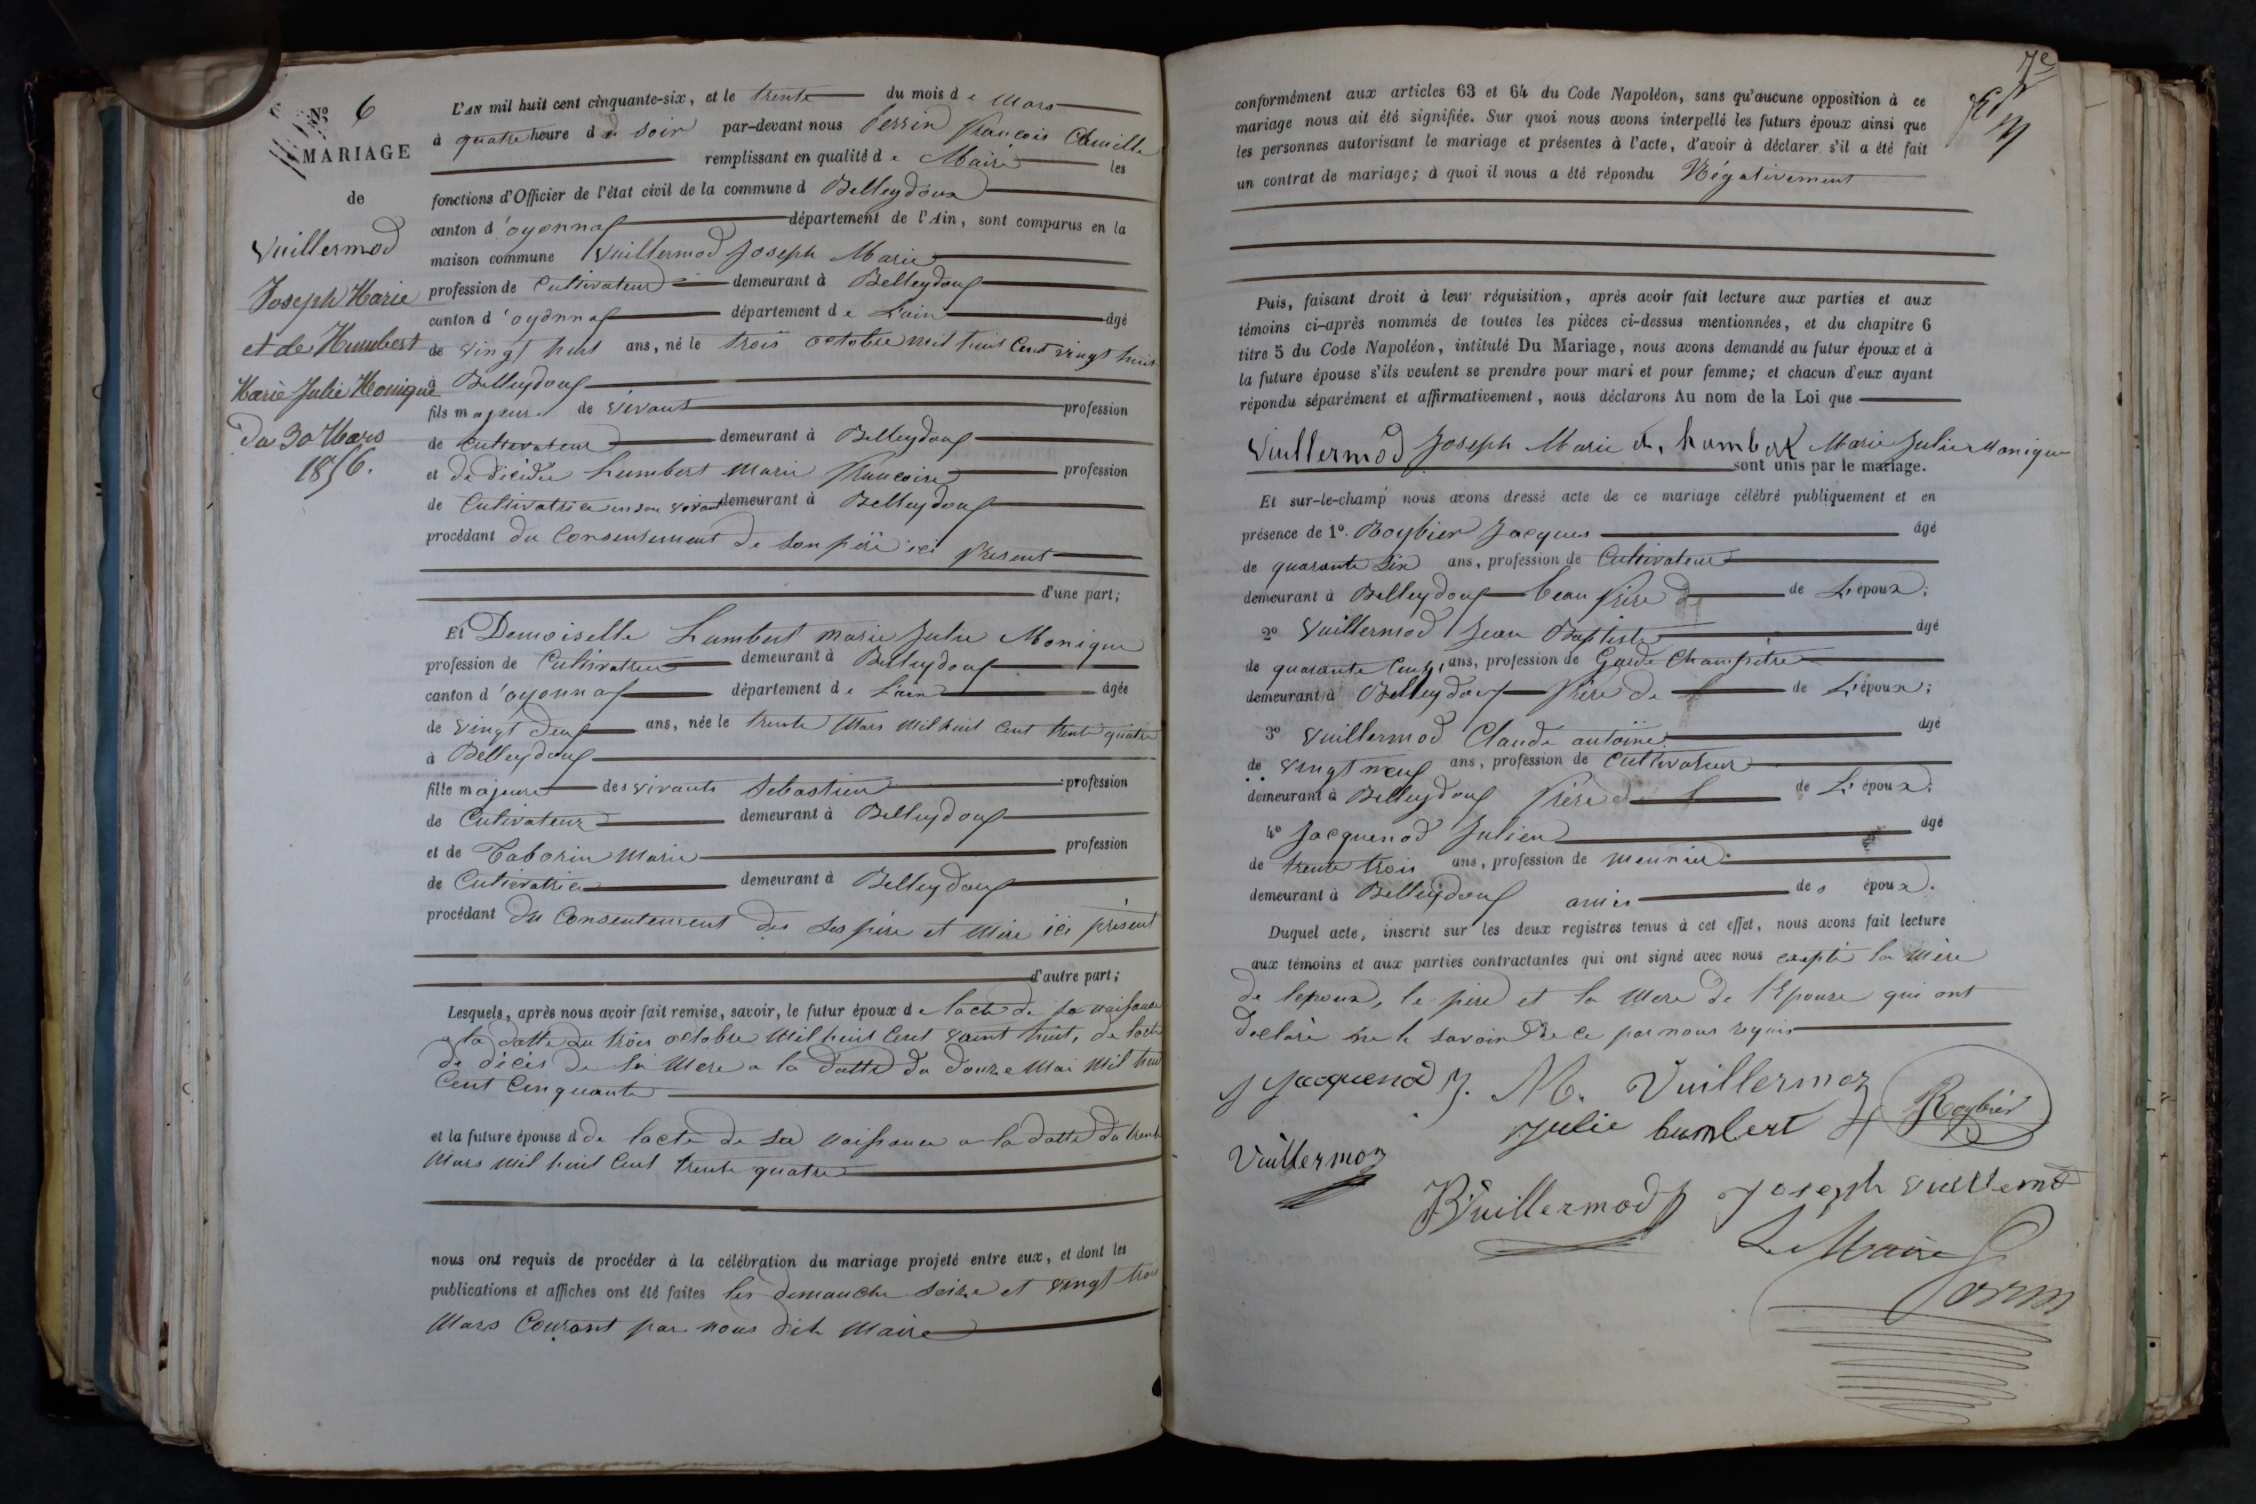 Nº 6
MARIAGE
de
Vuillermod
Joseph Marie
et de Humbert
Marie Julie Monique
Du 30 Mars
1856.
L'AN mil huit cent cinquante-six, et le trente du mois de Mars
à quatre heure du soir par-devant nous Perrin François Camille
remplissant en qualité de Maire les
fonctions d'Officier de l'état civil de la commune d Belleydoux
canton d'oyonnax département de l'Ain, sont comparus en la
maison commune Vuillermod Joseph Marie
profession de Cultivateur demeurant à Belleydoux
canton d'oyonnax département de L'ain âgé
de vingt huit ans, né le trois octobre mil huit Cent vingt huit
à Belleydoux
fils majeur de vivant profession
de Cultivateur demeurant à Belleydoux
et de décédée humbert Marie francoise profession
de Cultivatrice en son vivant demeurant à Belleydoux
procédant du Consentement de son père ici present
d'une part;
Et Demoiselle humbert marie Julie Monique
profession de Cultivatrice demeurant à Belleydoux
canton d'oyonnax département de L'ain âgée
de vingt deux ans, née le trente Mars mil huit Cent trente quatre
à Belleydoux
fille majeure des vivants Sebastien profession
de Cultivateur demeurant à Belleydoux
et de Taborin Marie profession
de Cultivatrice demeurant à Belleydoux
procédant du Consentement des ses père et Mère ici présent
d'autre part;
Lesquels, après nous avoir fait remise, savoir, le futur époux de lacte de sa naissance
a la datte du trois octobre Mil huit Cent vaint huit, de lacte
de décès de sa Mere a la datte du douze Mai Mil huit
Cent Cinquante
et la future épouse d de lacte de sa naissance a la datte du trente
Mars Mil huit Cent trente quatre
nous ont requis de procéder à la célébration du mariage projeté entre eux, et dont les
publications et affiches ont été faites les dimanche seize et vingt trois
Mars Courant par nous dit Maire
7e
conformément aux articles 63 et 64 du Code Napoléon, sans qu'aucune opposition à ce
mariage nous ait été signifiée. Sur quoi nous avons interpellé les futurs époux ainsi que
les personnes autorisant le mariage et présentes à l'acte, d'avoir à déclarer s'il a été fait
un contrat de mariage; à quoi il nous a été répondu Négativement
Puis, faisant droit à leur réquisition, après avoir fait lecture aux parties et aux
témoins ci-après nommés de toutes les pièces ci-dessus mentionnées, et du chapitre 6
titre 5 du Code Napoléon, intitulé Du Mariage, nous avons demandé au futur époux et à
la future épouse s'ils veulent se prendre pour mari et pour femme; et chacun d'eux ayant
répondu séparément et affirmativement, nous déclarons Au nom de la Loi que
Vuillermod Joseph Marie et humbert Marie Julie Monique
sont unis par le mariage.
Et sur-le-champ nous avons dressé acte de ce mariage célébré publiquement et en
présence de 1º Roybier Jacques âgé
de quarante six ans, profession de Cultivateur
demeurant à Belleydoux beau frère de L'époux;
2º Vuillermod Jean Baptiste âgé
de quarante Cinq ans, profession de Garde Champêtre
demeurant à Belleydoux frère de de L'époux;
3º Vuillermod Claude antoine âgé
de vingt neuf ans, profession de Cultivateur
demeurant à Belleydoux frère de L'époux;
4º Jacquenod Julien âgé
de trente trois ans, profession de meunier
demeurant à Belleydoux amis des époux.
Duquel acte, inscrit sur les deux registres tenus à cet effet, nous avons fait lecture
aux témoins et aux parties contractantes qui ont signé avec nous excepté la Mère
de lepoux, le père et la Mere de l'Epouse qui ont
declaré ne le savoir de ce par nous requis
J Jacquenod J. M. Vuillermoz Roybier
Julie humbert
Vuillermoz
B Vuillermod Joseph vuillermod
Le Maire
Perrin